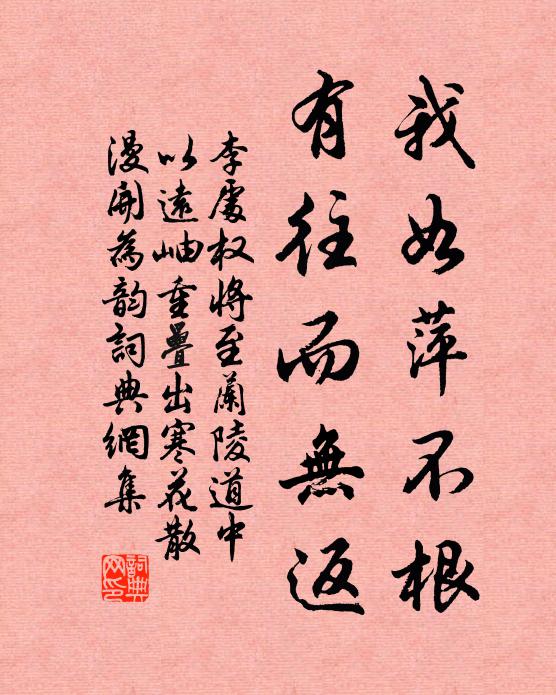 我如萍不根
有往而無返
李處权將至蘭陵道中
以遠岫重疊出寒花散
漫開為韵詞典網集
詞典网印